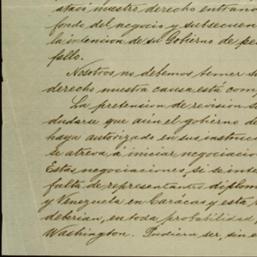 staci nuestro derecho entraño
fondo del negocio y subsecuen
la intencion de su Gobierno de pe
fallo.
Nosotros no debemos temer s
derecho nuestra causa está com
La pretension de revision s
dudarse que aún el gobierno de
haya autorizado en sus instruc
se atreva á iniciar negociacio
Estas negociaciones, si se inte
falta de representantes diplom
y Venezuela en Carácas y esta
deberian, en toda probabilidad,
Washington. Pudiera ser, sin e